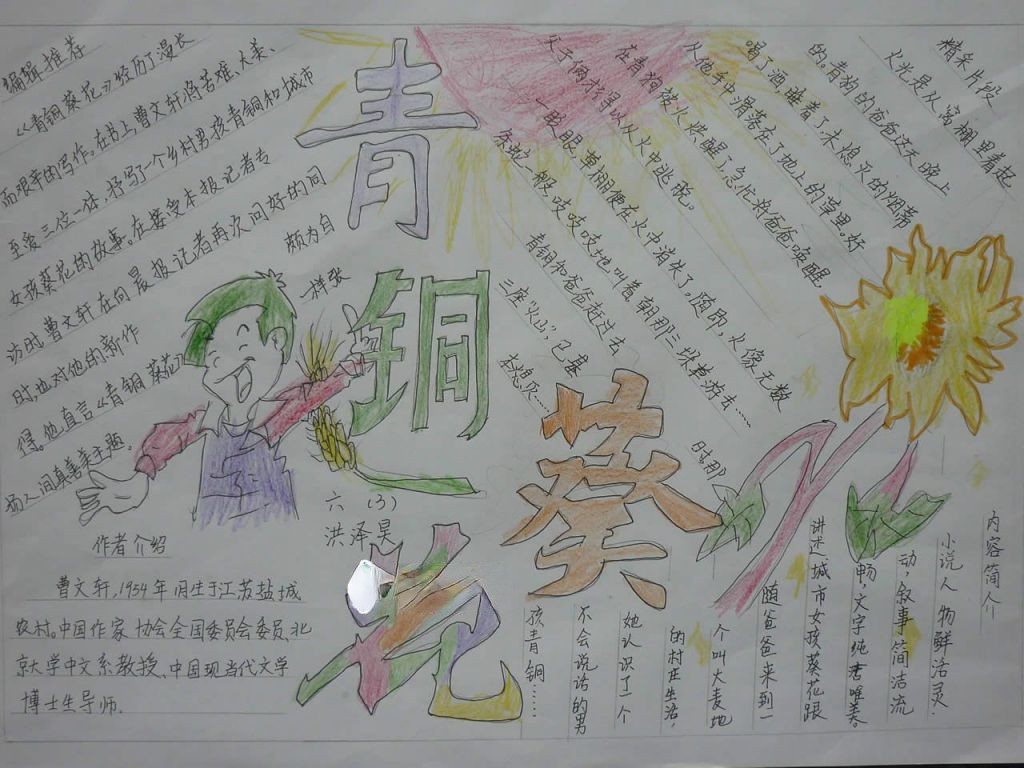 青
铜
葵
花
编辑推荐
《青铜葵花》经历了漫长
而艰辛的写作,在书上曹文轩将苦难、大美、
至爱三位一体,抒写了一个乡村男孩青铜和城市
女孩葵花的故事。在接受本报记者专
访时曹文轩在向晨报记者再次问好的同
时,也对他的新作 颇为自
得。他直言《青铜葵花》 一样张
扬人间真善美主题。
六(3)
洪泽昊
作者介绍
曹文轩,1954年 月生于江苏盐城
农村。中国作家协会全国委员会委员,北
京大学中文系教授、中国现当代文学
博士生导师.
精采片段
火光是从窝棚里着起
的青狗的爸爸这天晚上
喝了酒,睡着了,未熄灭的烟蒂
从他手中滑落在了地上的草里。好
在青狗被火烘醒了,急忙将爸爸唤醒,
父子俩才得以从火中逃脱。
一眨眼,草棚便在火中消失了,随即,火像无数
条蛇一般,吱吱吱地叫着朝那三垛茅游去……
青铜和爸爸赶过去
时那
三座“火山”,已基
本熄灭……
内容简介
小说人物鲜活灵
动,叙事简洁流
畅,文字纯 唯美
讲述城市女孩葵花跟
随爸爸来到一
个叫大麦地
的村庄生活,
她认识了一个
不会说话的男
孩青铜……